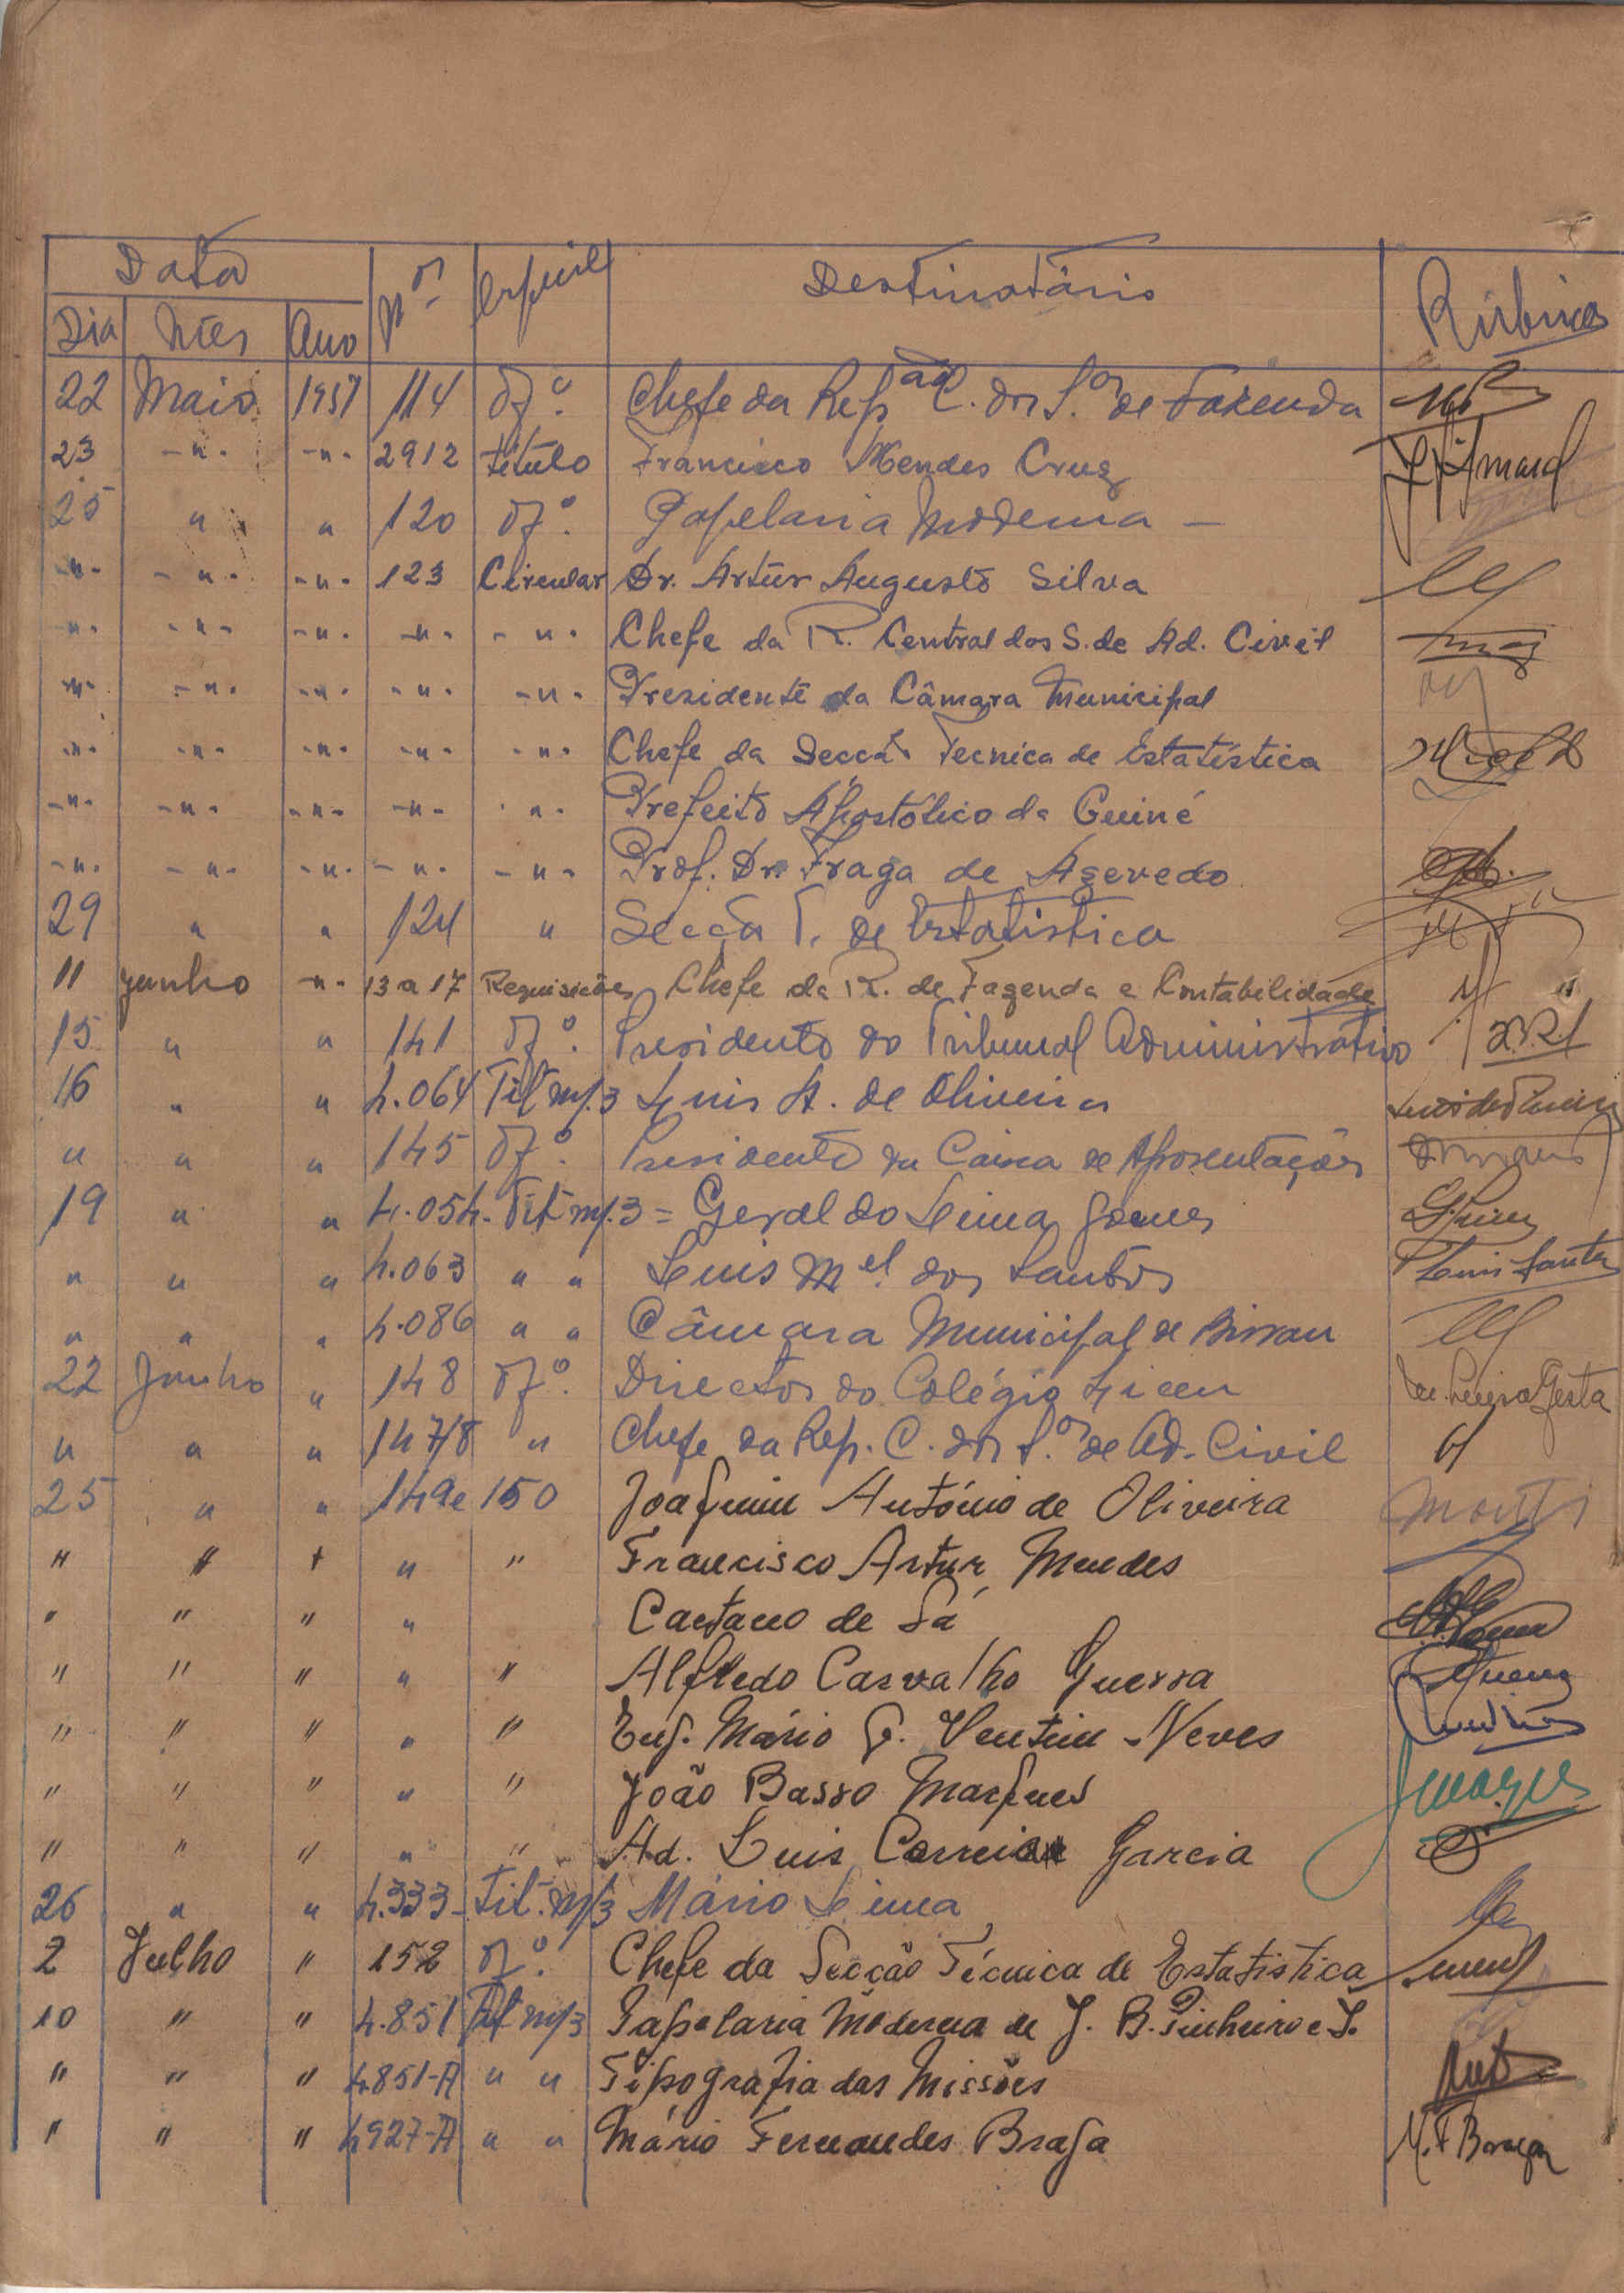 Data Nº Destinatário Rúbrica
Dia Mês Ano
22 Maio 1957 114 Ofº. Chefe da Repão C. dos S.os de Fazenda
23 -"- -"- 2912 título Francisco Mendes Cruz J. Amaral
25 " " 120 Ofº. Papelaria Moderna -
-"- -"- -"- 123 Circular Dr. Artur Augusto Silva
-"- -"- -"- -"- -"- Chefe da R. Central dos S. de Ad. Civil
-"- -"- -"- -"- -"- Presidente da Câmara Municipal
-"- -"- -"- -"- -"- Chefe da Secção Tecnica de Estatística
-"- -"- -"- -"- -"- Prefeito Apostólico da Guiné
-"- -"- -"- -"- -"- Prof. Dr. Fraga de Azevedo
29 " " 124 " Secção T. de Estatistica
11 Junho -"- 13 a 17 Requisições Chefe da R. de Fazenda e Contabilidade
15 " " 141 Ofº. Presidente do Tribunal Administrativo
16 " " 4.064 Tit m/3 Luis A. de Oliveira
" " " 145 Ofº. Presidente da Caixa de Aposentações
19 " " 4.054- Tit m/.3 = Geraldo Lima Gomes
" " " 4.063 " " Luis Mel. dos Santos Luis Santos
" " " 4.086 " " Câmara Municipal de Bissau
22 Junho " 148 Ofº. Director do Colégio Liceu
" " " 147/8 " Chefe da Rep. C. dos S.os de Ad. Civil
25 " " 149 e 150 Joaquim António de Oliveira
" " " " " Francisco Artur Mendes
" " " " Caetano de Sá
" " " " " Alfredo Carvalho Guerra
" " " " " Eng. Mário G. Ventim Neves
" " " " " João Basso Marques
" " " " " Ad. Luis Correia Garcia
26 " " 4.333- Tit. m/3 Mário Lima
2 Julho " 152 Ofº. Chefe da Secção Técnica de Estatistica
10 " " 4.851 Tit m/3 Papelaria Moderna de J. B. Pinheiro e S.
" " " 4851-A " " Tipografia das Missões
" " " 4927-A " " Mário Fernandes Braga M. F Braga